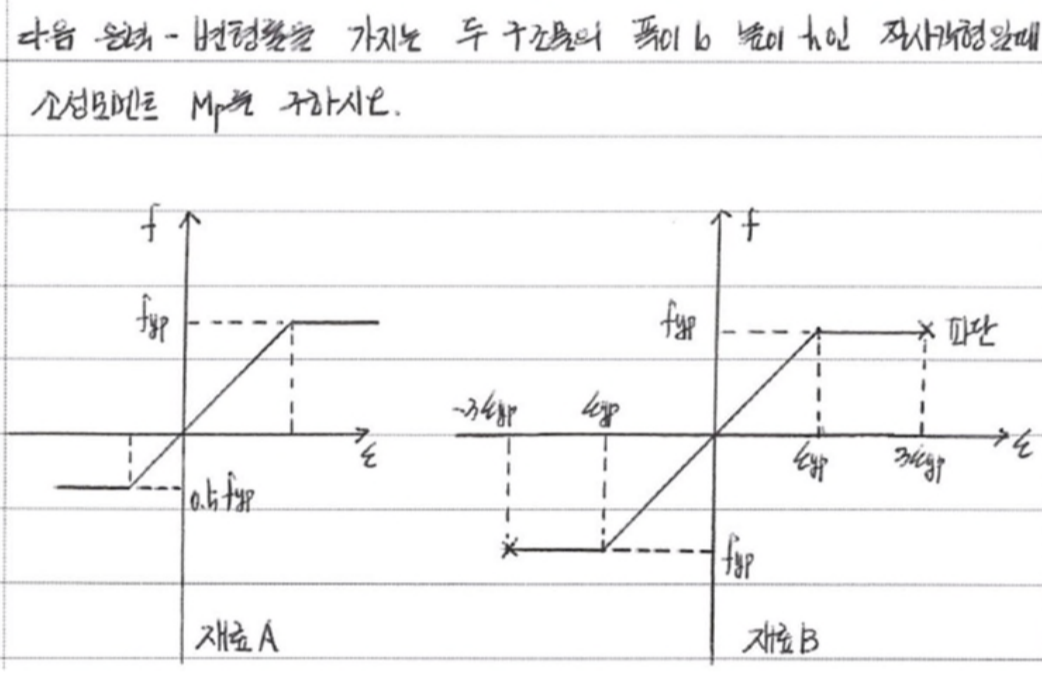 다음 응력-변형률을 가지는 두 구조물의 폭이 b 높이 h인 직사각형일때
소성모멘트 Mp를 구하시오.
f
fyp
ε
0.5fyp
재료A
f
fyp
파단
-3εyp
εyp
εyp
3εyp
ε
fyp
재료B